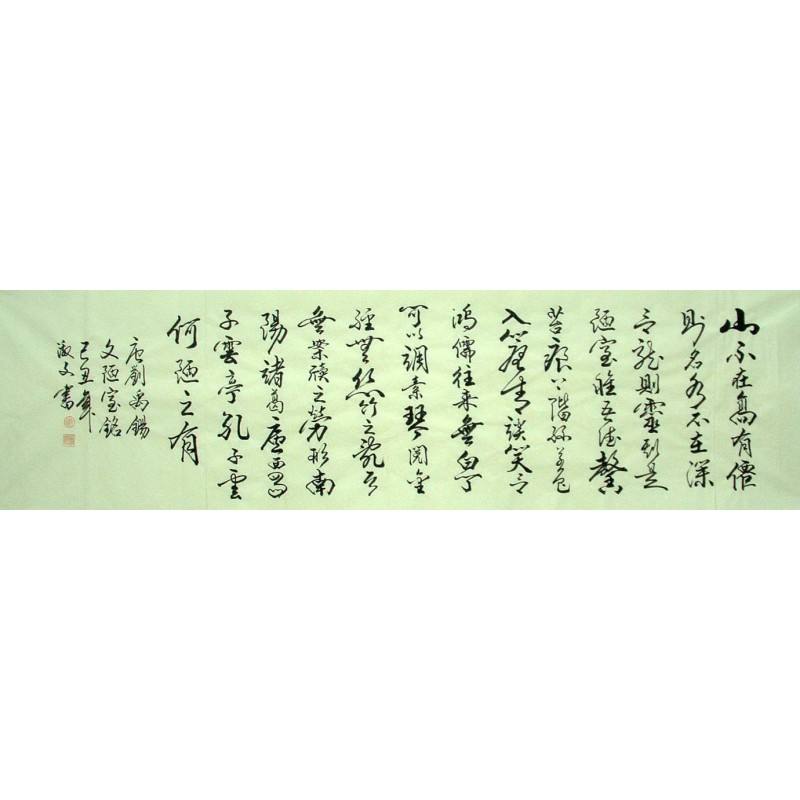 山不在高有僊
則名水不在深
有龍則靈斯是
陋室惟吾德馨
苔痕上階綠草色
入簾青談笑有
鴻儒往來無白丁
可以調素琴閱金
經無絲竹之亂耳
無案牘之勞形南
陽諸葛廬西蜀
子雲亭孔子雲
何陋之有
唐劉禹錫
文陋室銘
己丑年
淑文書